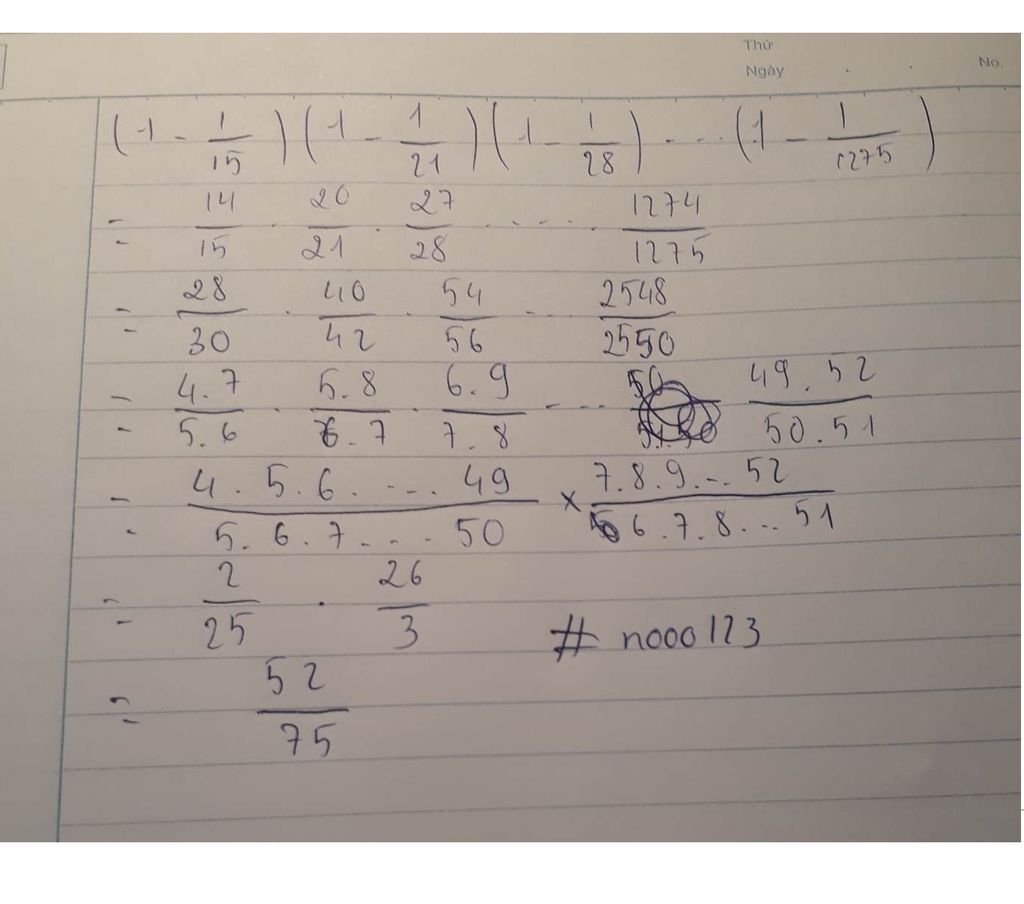 Thứ
Ngày . . No.
(1 - 1/15)(1 - 1/21)(1 - 1/28) ... (1 - 1/1275)
= 14/15 . 20/21 . 27/28 ..... 1274/1275
= 28/30 . 40/42 . 54/56 ... 2548/2550
= 4.7/5.6 . 5.8/6.7 . 6.9/7.8 ... 49.52/50.51
= 4.5.6. ... 49/5.6.7... 50 × 7.8.9... 52/6.7.8... 51
= 2/25 . 26/3
# nooo123
= 52/75